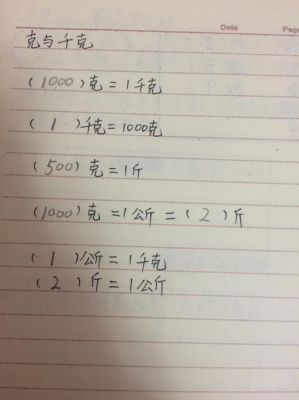 Date
Page
克与千克
(1000)克=1千克
(1)千克=1000克
(500)克=1斤
(1000)克=1公斤=(2)斤
(1)公斤=1千克
(2)斤=1公斤